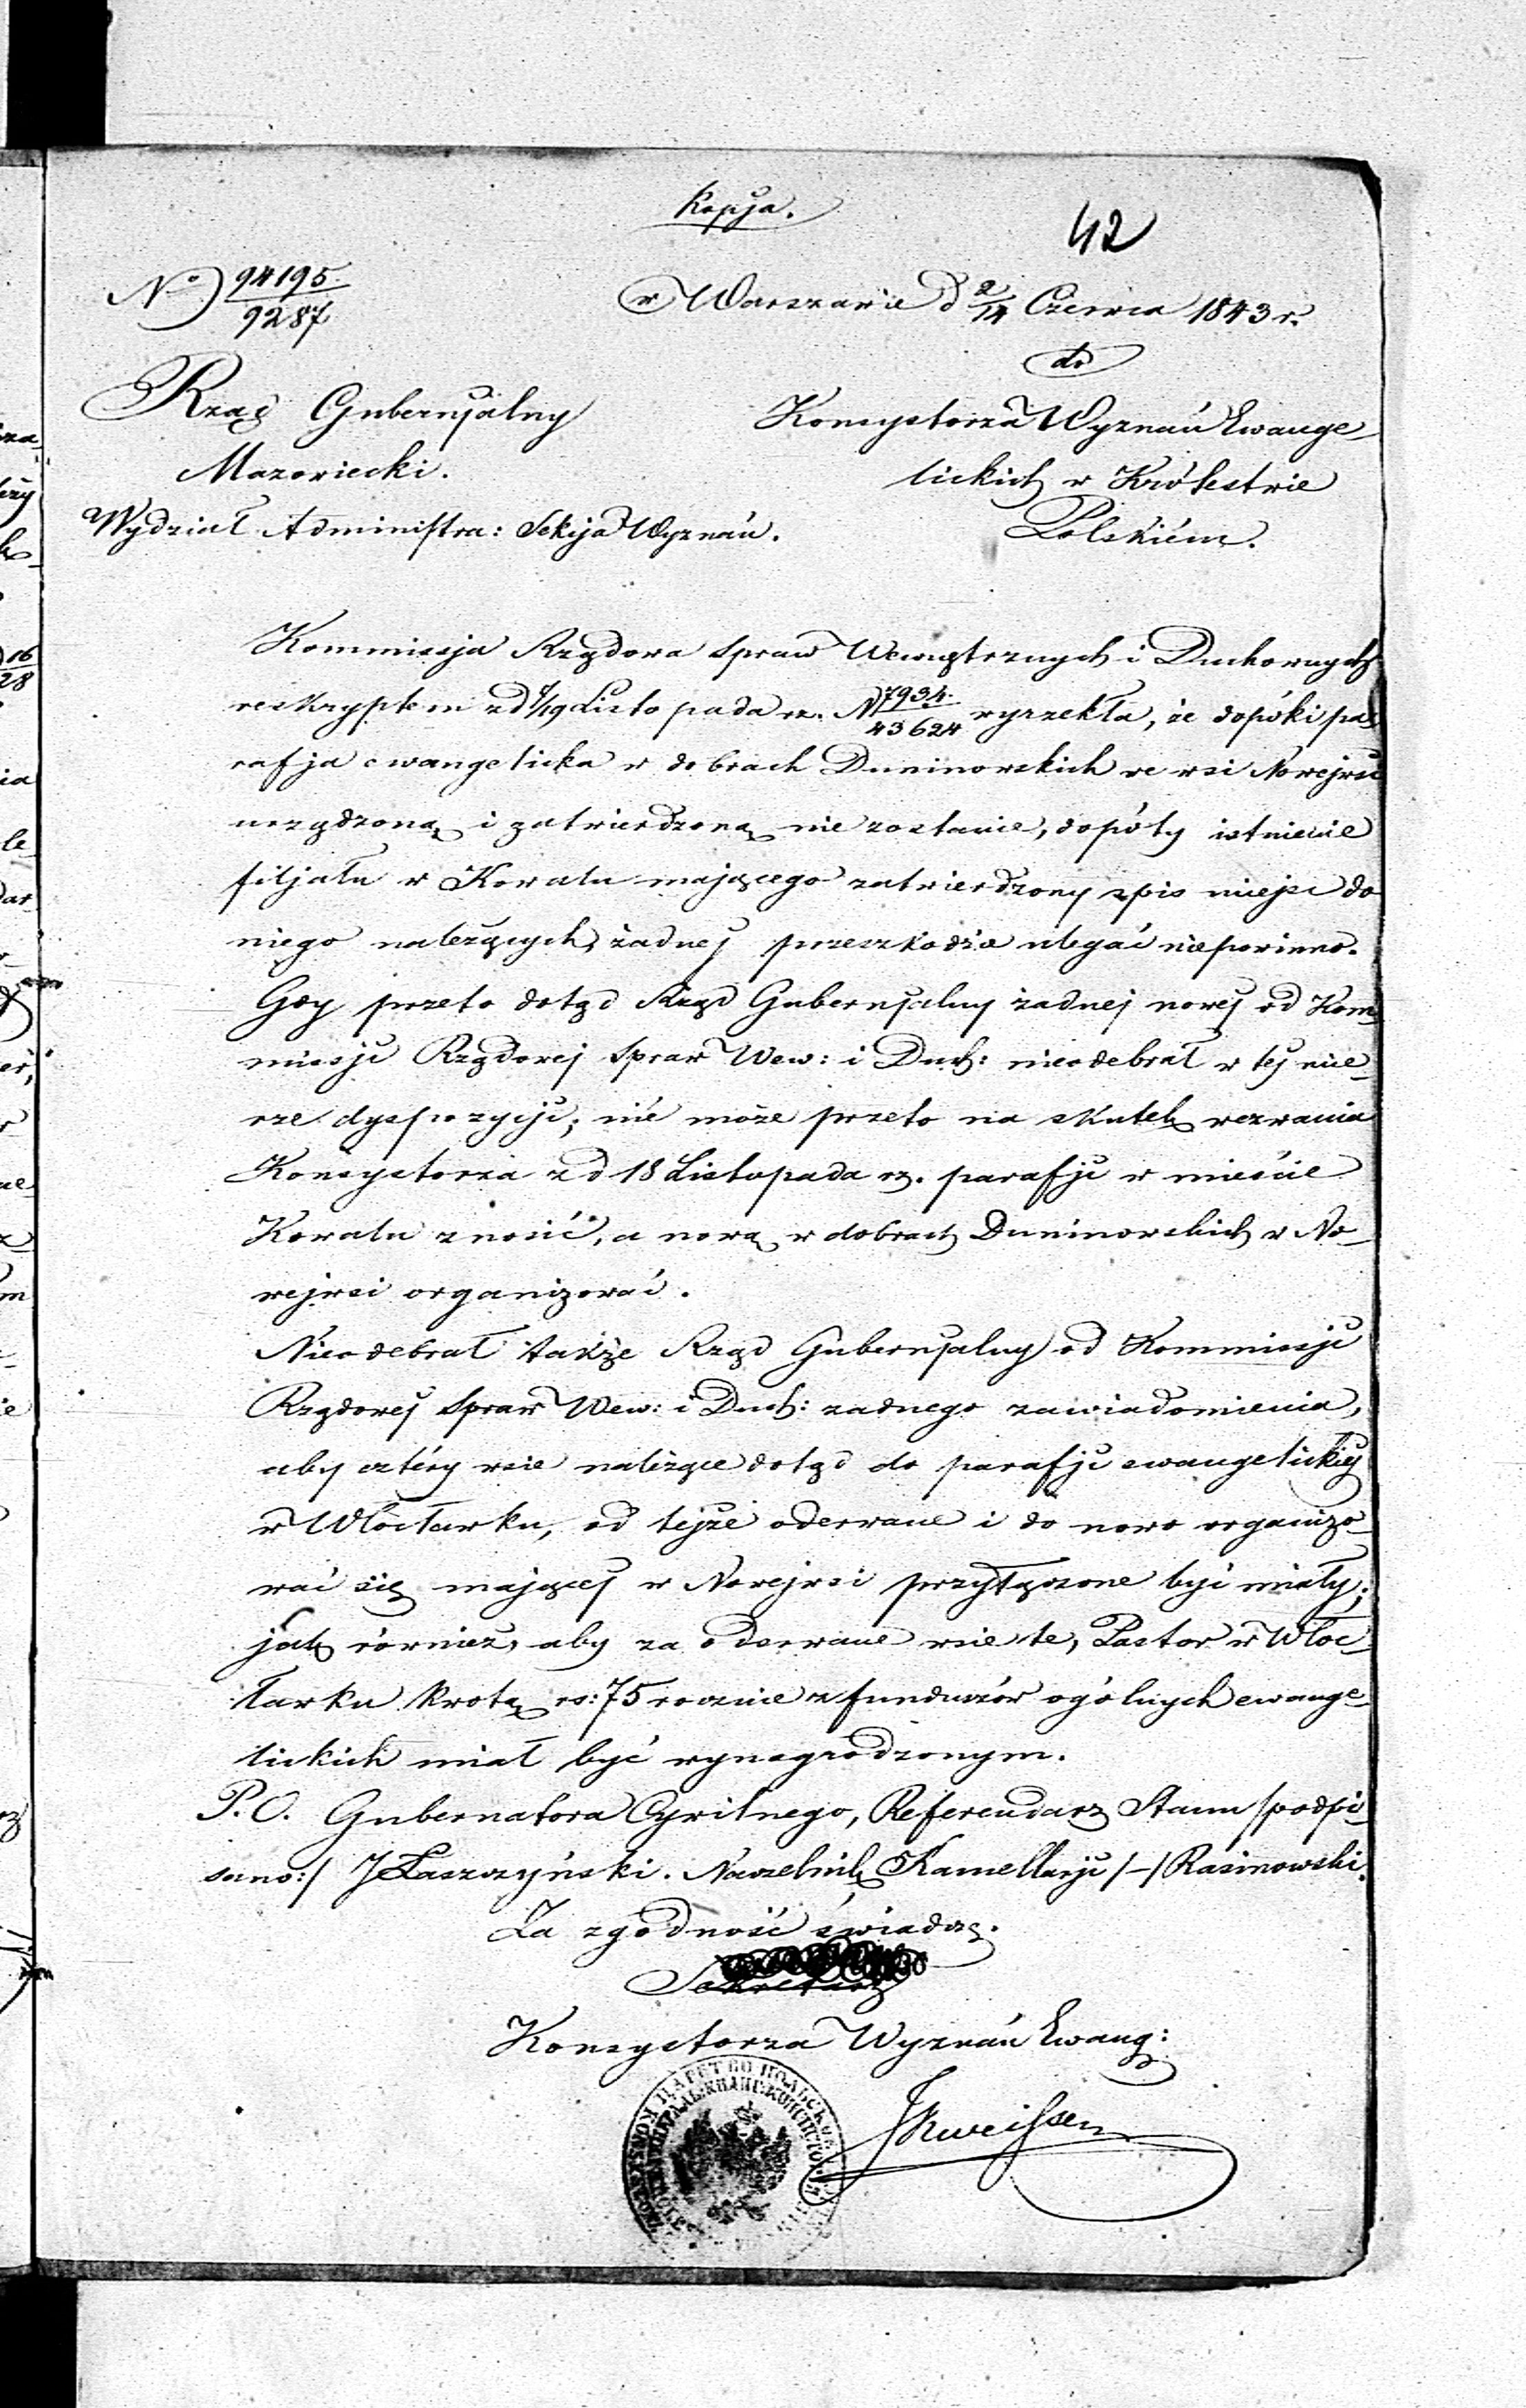 Kopja.
42
No 94195/9287
w Warszawie d 2/14 Czerwca 1843 r.
do
Rząd Gubernjalny
Konsystorza Wyznań Ewange-
Mazowiecki.
lickich w Królestwie
Wydział Administra: Sekcja Wyznań.
Polskiém.
Kommissja Rządowa Spraw Wewnętrznych i Duchownych
reskryptem z d 7/19 Listopada rz. N 7934/43624 wyrzekła, że dopóki pa-
rafja ewangelicka w dobrach Duninowskich we wsi Nowejwsi
urządzoną i zatwierdzoną nie zostanie, dopóty istnienie
filjału w Kowalu mającego zatwierdzony spis miejsc do
niego należących, żadnej przeszkodzie ulegać niepowinno.
Gdy przeto dotąd Rząd Gubernjalny żadnej nowej od Kom-
missji Rządowej Spraw Wew: i Duch: nieodebrał w tej mie-
rze dyspozycji; nie może przeto na skutek wezwania
Konsystorza z d 18 Listopada rz. parafji w mieście
Kowalu znosić, a nową w dobrach Duninowskich w No-
wejwsi organizować.
Nieodebrał także Rząd Gubernjalny od Kommissji
Rządowej Spraw Wew: i Duch: żadnego zawiadomienia,
aby cztéry wsie należące dotąd do parafji ewangelickiej
w Włocławku, od tejże oderwane i do nowo organizo-
wać się mającej w Nowejwsi przyłączone być miały;
jak również, aby za oderwane wsie te, Pastor w Włoc-
ławku kwotą rs: 75 rocznie z funduszów ogólnych ewange-
lickich miał być wynagrodzonym.
P.O. Gubernatora Cywilnego, Referendarz Stanu /podpi-
sano:/ J Łaszczyński. Naczelnik Kancellarji /-/ Rasinowski.
Za zgodność świadczę.
Sekretarz
Konsystorza Wyznań Ewang: